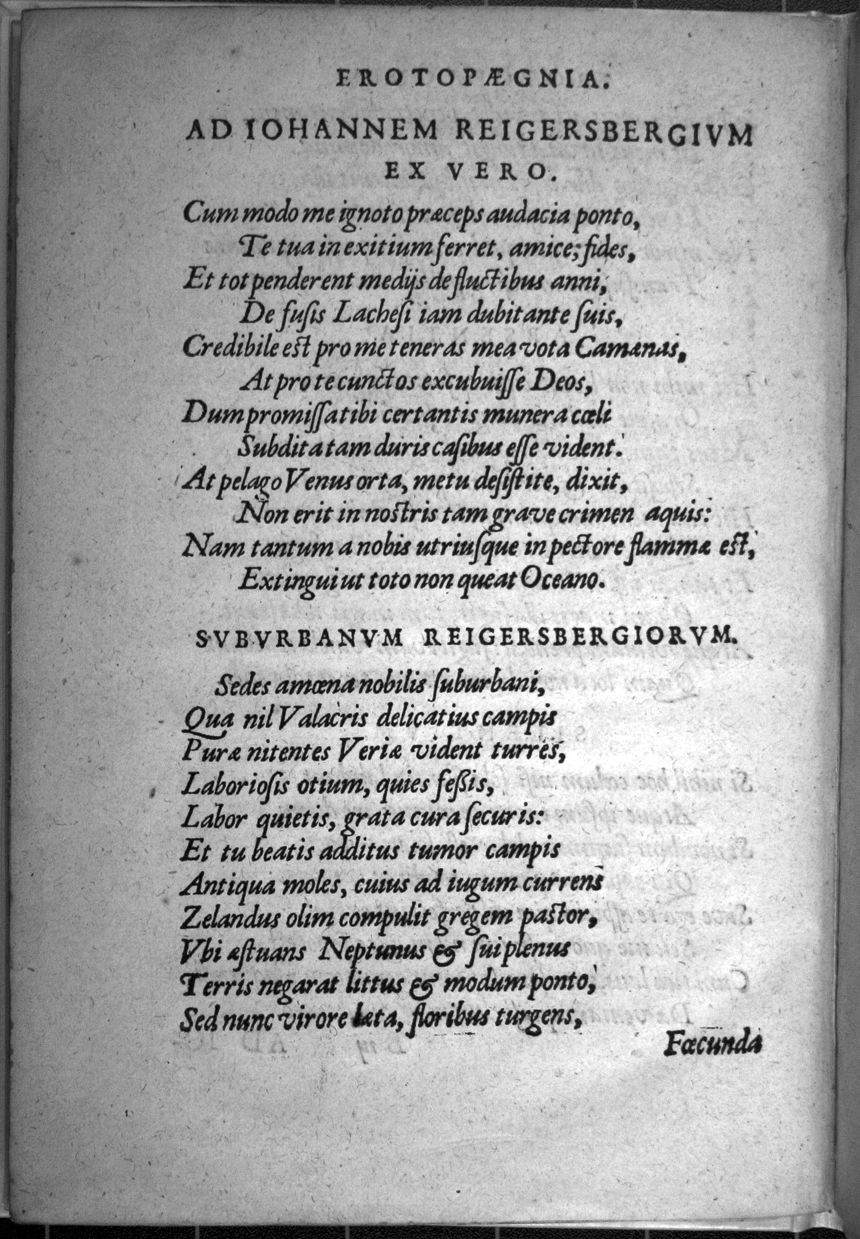 EROTOPÆGNIA.
AD IOHANNEM REIGERSBERGIVM
EX VERO.
Cum modo me ignoto præceps audacia ponto,
Te tua in exitium ferret, amice; fides,
Et tot penderent medijs de fluctibus anni,
De fusis Lachesi iam dubitante suis,
Credibile est pro me teneras mea vota Camænas,
At pro te cunctos excubuisse Deos,
Dum promissa tibi certantis munera cœli
Subdita tam duris casibus esse vident.
At pelago Venus orta, metu desistite, dixit,
Non erit in nostris tam grave crimen aquis:
Nam tantum a nobis utriusque in pectore flammæ est,
Extingui ut toto non queat Oceano.
SVBVRBANVM REIGERSBERGIORVM.
Sedes amœna nobilis suburbani,
Qua nil Valacris delicatius campis
Puræ nitentes Veriæ vident turres,
Laboriosis otium, quies feßis,
Labor quietis, grata cura securis:
Et tu beatis additus tumor campis
Antiqua moles, cuius ad iugum currens
Zelandus olim compulit gregem pastor,
Vbi æstuans Neptunus & sui plenus
Terris negarat littus & modum ponto,
Sed nunc virore læta, floribus turgens,
Fœcunda